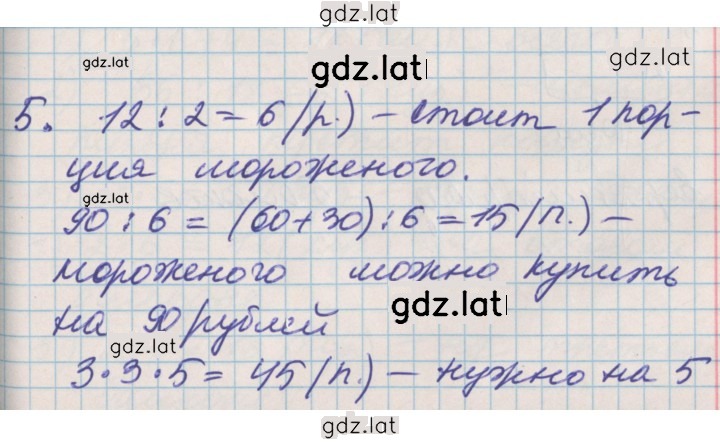 gdz.lat
gdz.lat
gdz.lat
5. 12 : 2 = 6 (р.) – стоит 1 пор-
ция мороженого.
gdz.lat
90 : 6 = (60+30) : 6 = 15 (п.) –
мороженого можно купить
на 90 рублей
gdz.lat
gdz.lat
3·3·5 = 45 (п.) – нужно на 5
gdz.lat